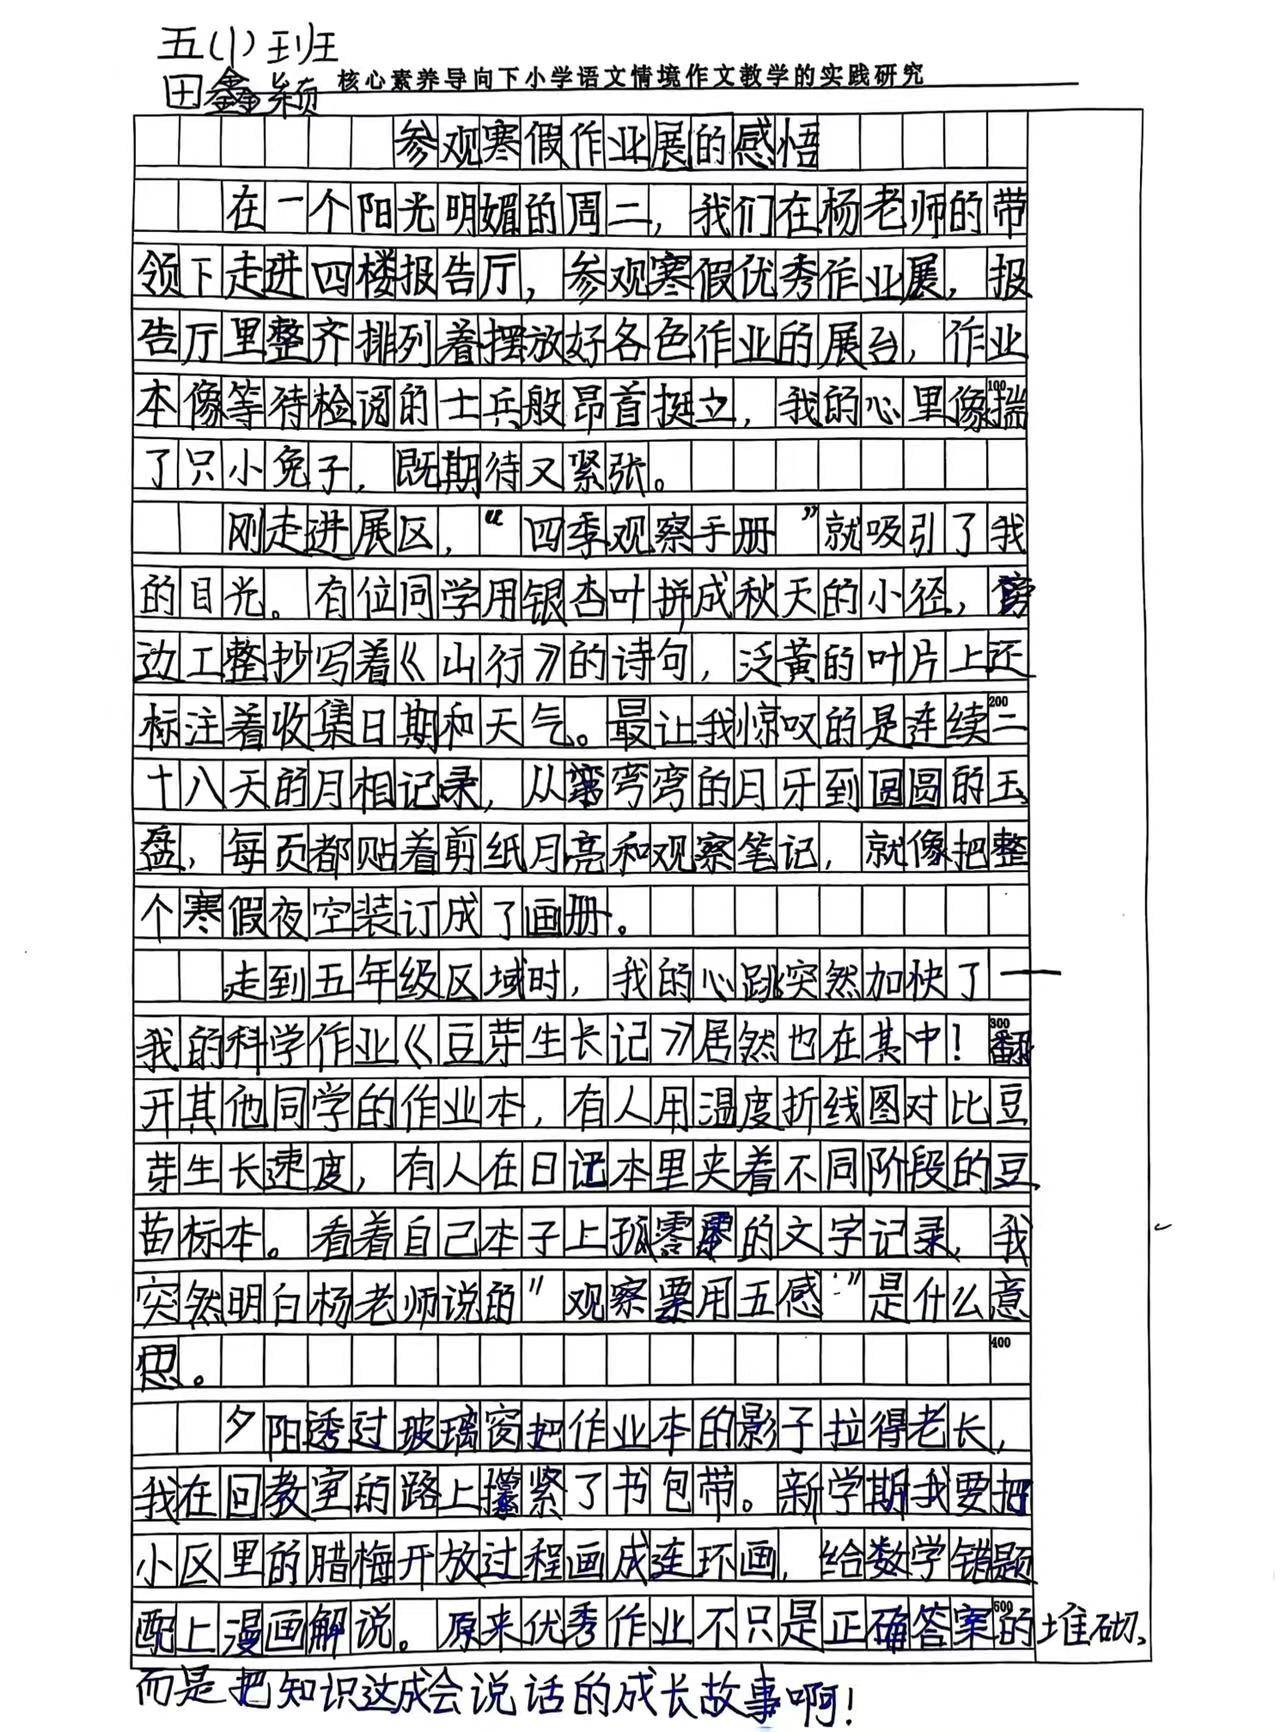 五(1)班
田鑫颖
核心素养导向下小学语文情境作文教学的实践研究
参观寒假作业展的感悟
在一个阳光明媚的周二，我们在杨老师的带
领下走进四楼报告厅，参观寒假优秀作业展，报
告厅里整齐排列着摆放好各色作业的展台，作业
本像等待检阅的士兵般昂首挺立，我的心里像揣
100
了只小兔子，既期待又紧张。
刚走进展区，“四季观察手册”就吸引了我
的目光。有位同学用银杏叶拼成秋天的小径，旁
边工整抄写着《山行》的诗句，泛黄的叶片上还
标注着收集日期和天气。最让我惊叹的是连续二
200
十八天的月相记录，从弯弯弯的月牙到圆圆的玉
盘，每页都贴着剪纸月亮和观察笔记，就像把整
个寒假夜空装订成了画册。
走到五年级区域时，我的心跳突然加快了——
我的科学作业《豆芽生长记》居然也在其中！翻
300
开其他同学的作业本，有人用温度折线图对比豆
芽生长速度，有人在日记本里夹着不同阶段的豆
苗标本。看着自己本子上孤零零的文字记录，我
突然明白杨老师说的"观察要用五感"是什么意
思。
400
夕阳透过玻璃窗把作业本的影子拉得老长，
我在回教室的路上攥紧了书包带。新学期我要把
小区里的腊梅开放过程画成连环画，给数学错题
配上漫画解说。原来优秀作业不只是正确答案的堆砌，
600
而是把知识这成会说话的成长故事啊！